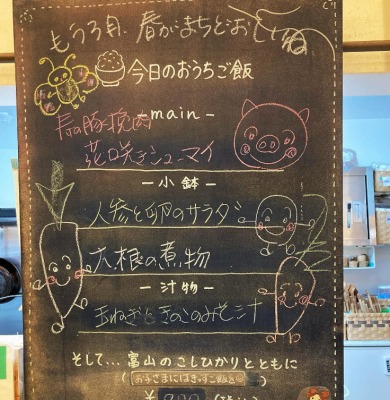 もう3月、春がまちどおしいね
今日のおうちご飯
- main -
春の豚挽肉
花咲きシューマイ
- 小鉢 -
人参と卵のサラダ
大根の煮物
- 汁物 -
玉ねぎときのこのみそ汁
そして...富山のこしひかりとともに